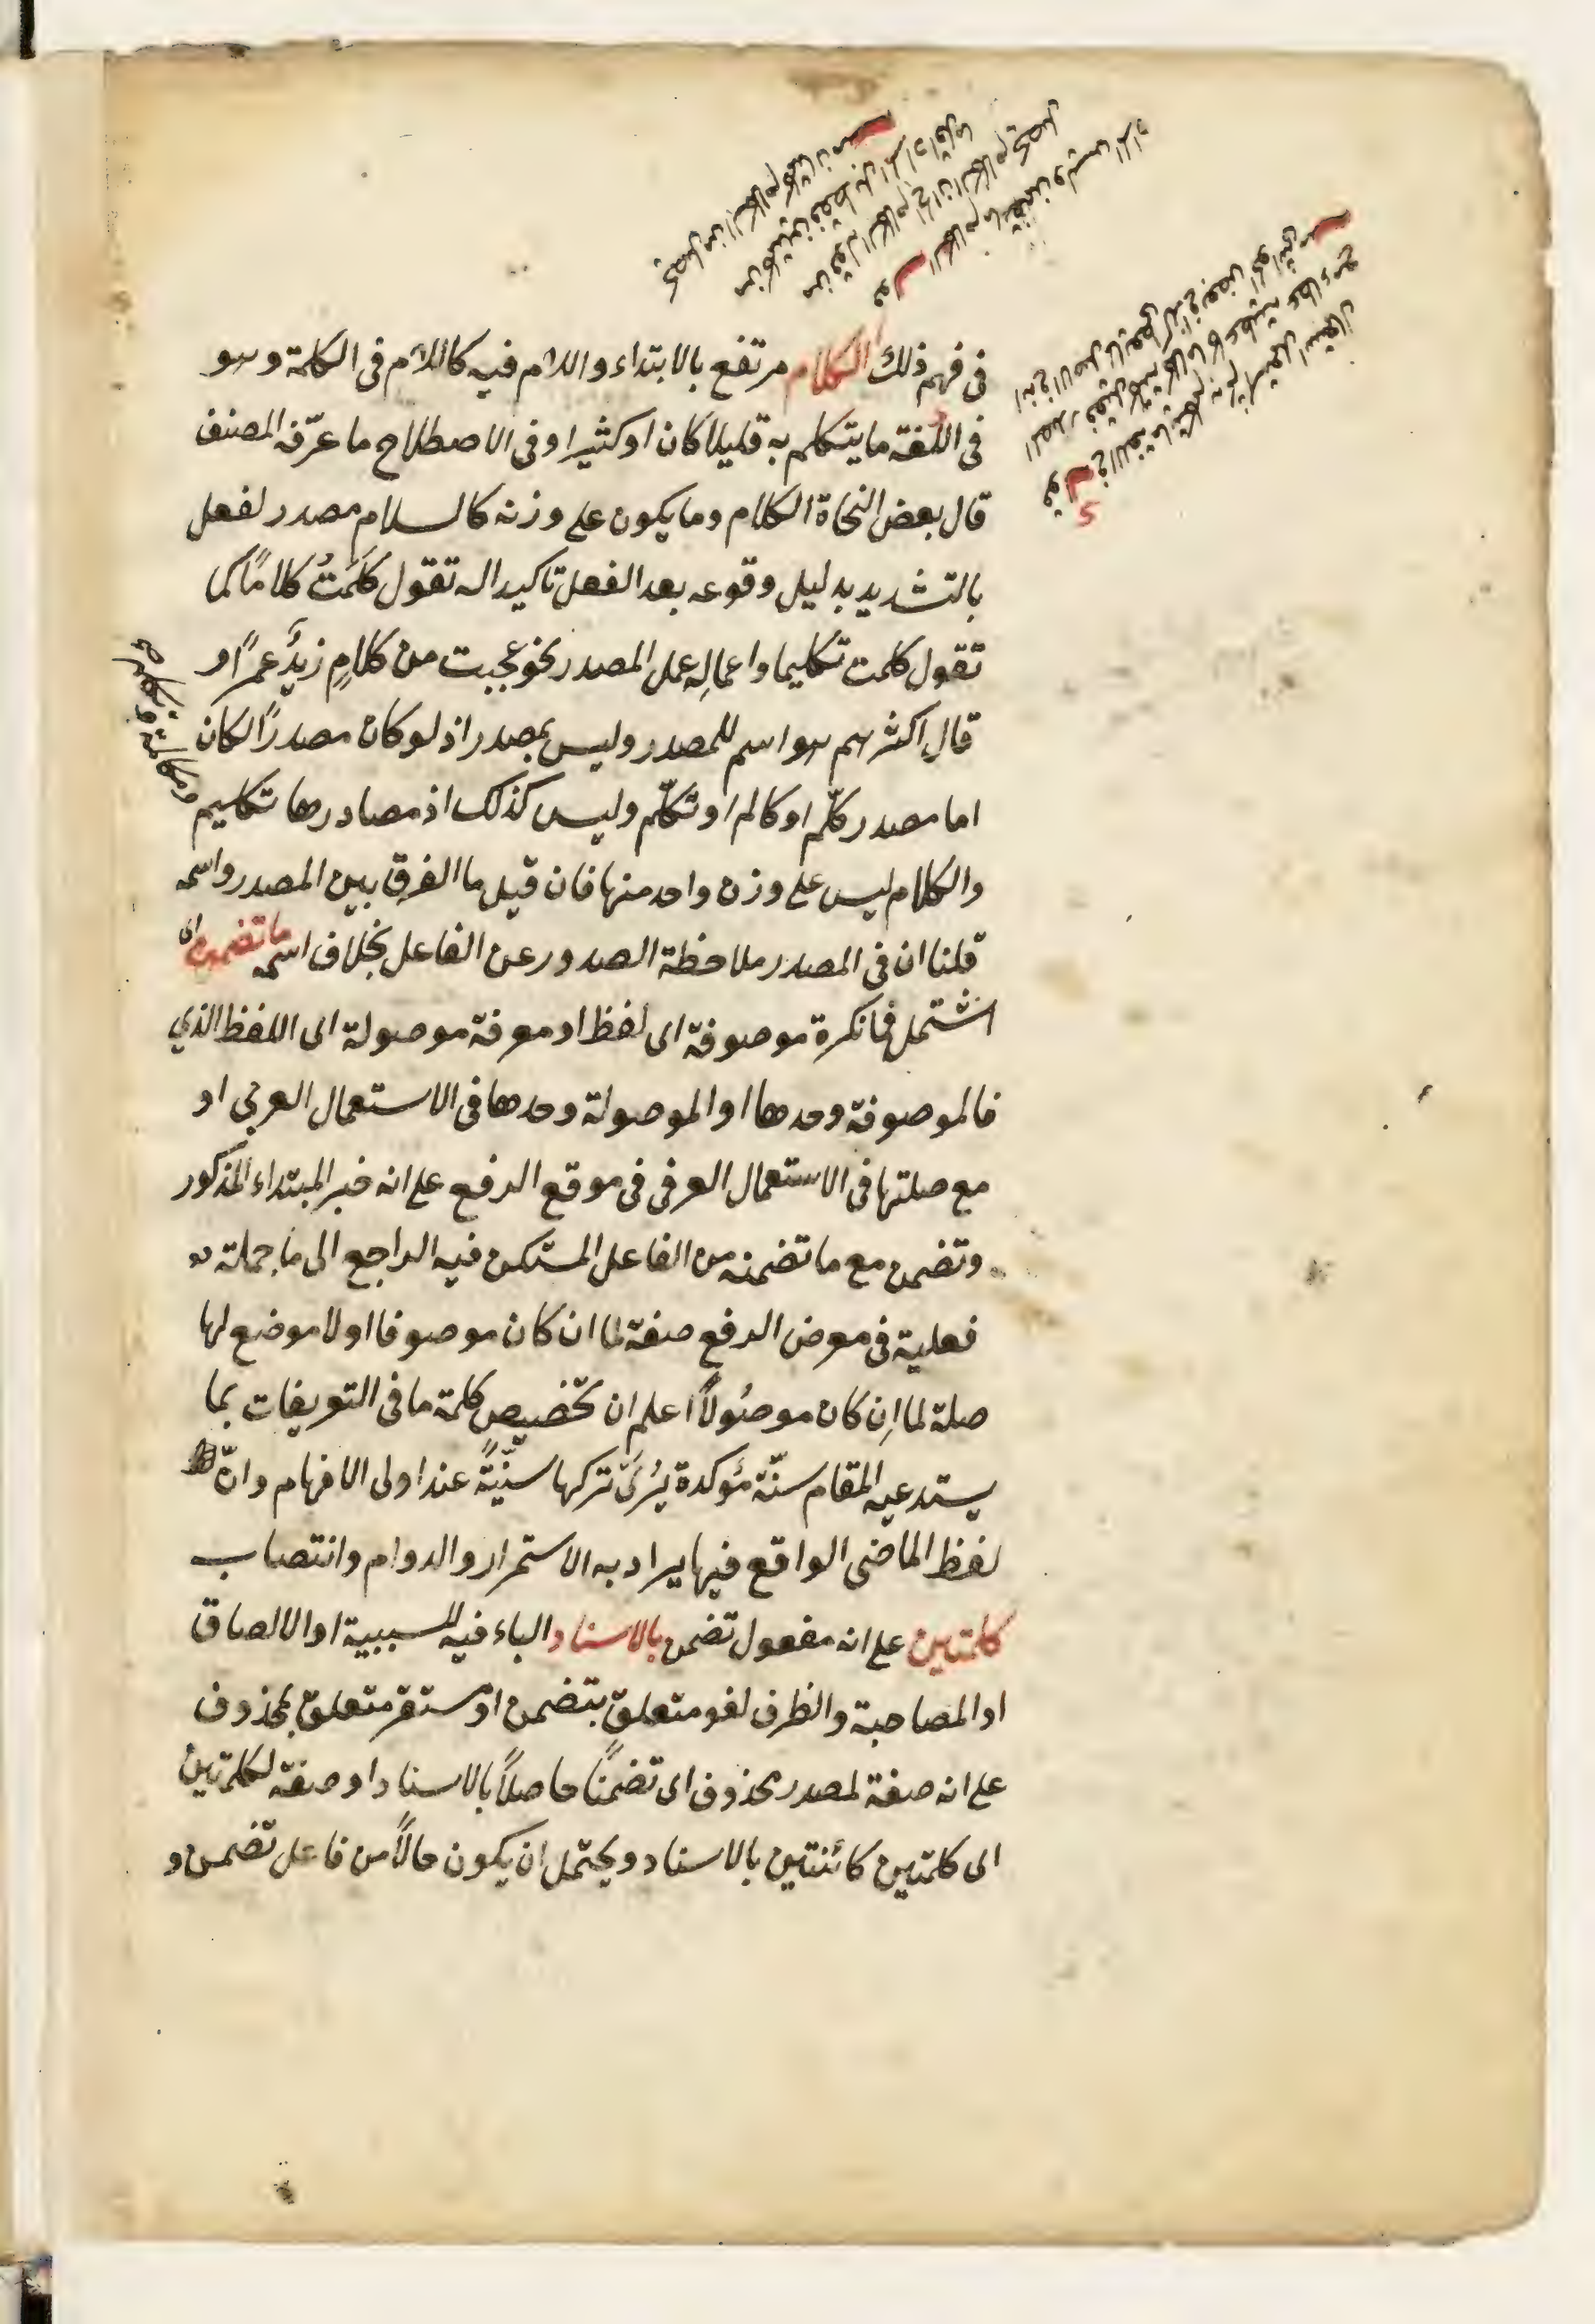 في فهم ذلك الكلام مرتفع بالابتداء واللام فيه كاللام في الكلمة وهو
في اللغة ما يتكلم به قليلا كان او كثيرا وفي الاصطلاح ما عرّفه المصنف
قال بعض النحاة الكلام وما يكون على وزنه كالسلام مصدر لفعل
بالتشديد بدليل وقوعه بعد الفعل تاكيدا له تقول كلمتُ كلامًا كما
تقول كلمت تكليما واعمالِه عمل المصدر نحو عجبت من كلامٍ زيدٌ عمرًا و
قال اكثرهم هو اسم للمصدر وليس بمصدر اذ لو كان مصدرًا لكان
اما مصدر كلّم او كالم او تكلّم وليس كذلك اذ مصادرها تكليم
ومكالمة وتكلم صح
والكلام ليس على وزن واحد منها فان قيل ما الفرق بين المصدر واسمه
قلنا ان في المصدر ملاحظة الصدور عن الفاعل بخلاف اسمه ما تضمن اى
اشتمل فما نكرة موصوفة اى لفظ او معرفة موصولة اى اللفظ الذي
فالموصوفة وحدها او الموصولة وحدها في الاستعمال العربي او
مع صلتها في الاستعمال العرفي في موقع الرفع على انه خبر المبتداء المذكور
وتضمن مع ما تضمنه من الفاعل المستكن فيه الراجع الى ما جملة
فعلية في معرض الرفع صفة لما ان كان موصوفا او لا موضع لها
صلة لما اِن كان موصُولاً اعلم ان تخصيص كلمة ما في التعريفات بما
يستدعيه المقام سنّة مؤكدة يُرىَ تركها سيّئةً عند اولى الافهام وانّ
لفظ الماضى الواقع فيها يراد به الاستمرار والدوام وانتصاب
كلمتين على انه مفعول تضمن بالاسناد الباء فيه للسببية او الالصاق
او المصاحبة والظرف لغو متعلق بتضمن او مستقر متعلق بمحذوف
على انه صفة لمصدر محذوف اى تضمنًا حاصلاً بالاسناد او صفة لكلمتين
اى كلمتين كائنتين بالاسناد ويحتمل ان يكون حالاً من فاعل تضمن و